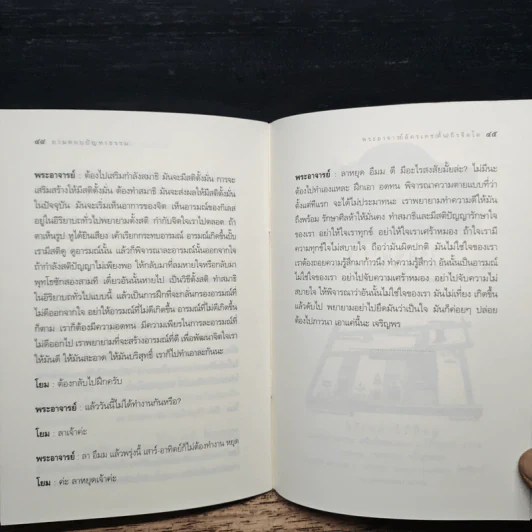 ๔๔ ถามตอบปัญหาธรรม
พระอาจารย์ : ต้องไปเสริมกำลังสมาธิ มันจะมีสติตั้งมั่น การจะ
เสริมสร้างให้มีสติตั้งมั่น ต้องทำสมาธิ มันจะส่งผลให้มีสติตั้งมั่น
ในปัจจุบัน มันจะเริ่มเห็นอาการของจิต เห็นอารมณ์ของกิเลส
อยู่ในอิริยาบถทั่วไปพยายามตั้งสติ กำกับจิตใจเราไปตลอด ถ้า
ตาเห็นรูป หูได้ยินเสียง เด้าเรียกกระทบอารมณ์ อารมณ์เกิดขึ้นปั๊บ
เรามีสติดู ดูอารมณ์นั้น แล้วก็พิจารณาละอารมณ์นั้นออกจากใจ
ถ้ากำลังสติปัญญาไม่เพียงพอ ให้กลับมาที่ลมหายใจหรือกลับมา
พุทโธซักสองสามที เดี๋ยวอันนั้นหายไป เป็นวิธีตั้งสติ ทำสมาธิ
ในอิริยาบถทั่วไปแบบนี้ แล้วเป็นการฝึกที่จะกลั่นกรองอารมณ์ที่
ไม่ดีออกจากใจ อย่าให้อารมณ์ที่ไม่ดีเกิดขึ้น อารมณ์ที่ไม่ดีเกิดขึ้น
ก็ตาม เราก็ต้องมีความอดทน มีความเพียรในการละอารมณ์ที่
ไม่ดีออกไป เราพยายามที่จะสร้างอารมณ์ที่ดี เพื่อพัฒนาจิตใจเรา
ให้มันดี ให้มันสะอาด ให้มันบริสุทธิ์ เราก็ไปทำเอาละกันนะ
โยม : ต้องกลับไปฝึกครับ
พระอาจารย์ : แล้ววันนี้ไม่ได้ทำงานกันหรือ?
โยม : ลาเจ้าค่ะ
พระอาจารย์ : ลา อืมม แล้วพรุ่งนี้ เสาร์-อาทิตย์ก็ไม่ต้องทำงาน หยุด
โยม : ค่ะ ลาหยุดเจ้าค่ะ
พระอาจารย์อัครเดช ๔๕
พระอาจารย์ : ลาหยุด อืมม ดี มีอะไรสงสัยมั้ยล่ะ? ไม่มีนะ
ต้องไปทำเองแหละ ฝึกเอา อดทน พิจารณาความตายแบบที่ว่า
ตั้งแต่ตีแรก จะได้ไม่ประมาทนะ เราพยายามทำความดีให้มัน
ถึงพร้อม รักษาศีลห้าให้มั่นคง ทำสมาธิและมีสติปัญญารักษาใจ
ของเรา อย่าให้ใจเราทุกข์ อย่าให้ใจเราเศร้าหมอง ถ้าใจเรามี
ความทุกข์ใจไม่สบายใจ ถือว่ามันผิดปกติ มันไม่ใช่ใจของเรา
เราต้องถอยความรู้สึกมาก้าวนึง ทำความรู้สึกว่า อันนั้นเป็นอารมณ์
ไม่ใช่ใจของเรา อย่าไปจับความเศร้าหมอง อย่าไปจับความไม่
สบายใจ ให้พิจารณาว่าอันนั้นไม่ใช่ใจของเรา มันไม่เที่ยง เกิดขึ้น
แล้วดับไป พยายามอย่าไปยึดติดว่าเป็นใจ มันก็ค่อยๆ ปล่อย
ต้องไปภาวนา เอาแค่นี้นะ เจริญพร